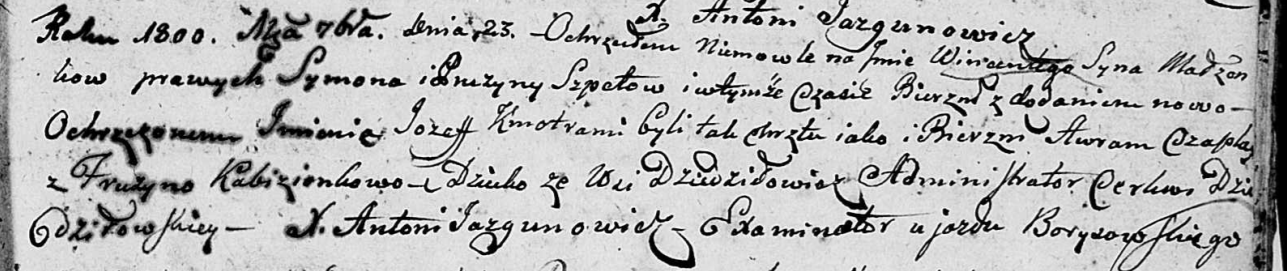 X. Antoni Jazgunowicz
Roku 1800. Mca 7bra. dnia 23. Ochrzciłem Niemowle na Jmie Wincentego Syna Małżon
kow prawych Symona i Pruzyny Szpetow i wtymże Czasie Bierzm z dodaniem nowo-
Ochrzczonemu Jmienia Jozeff Kmotrami byli tak chrztu iako i Bierzm Awram Czaplay
z Fruzyno Kabizionkowo - Dziecko ze Wsi Dziedziłowicz Administrator Cerkwi Dzie
dziłowskiey - X. Antoni Jazgunowicz - Examinator ujazdu Borysowskiego